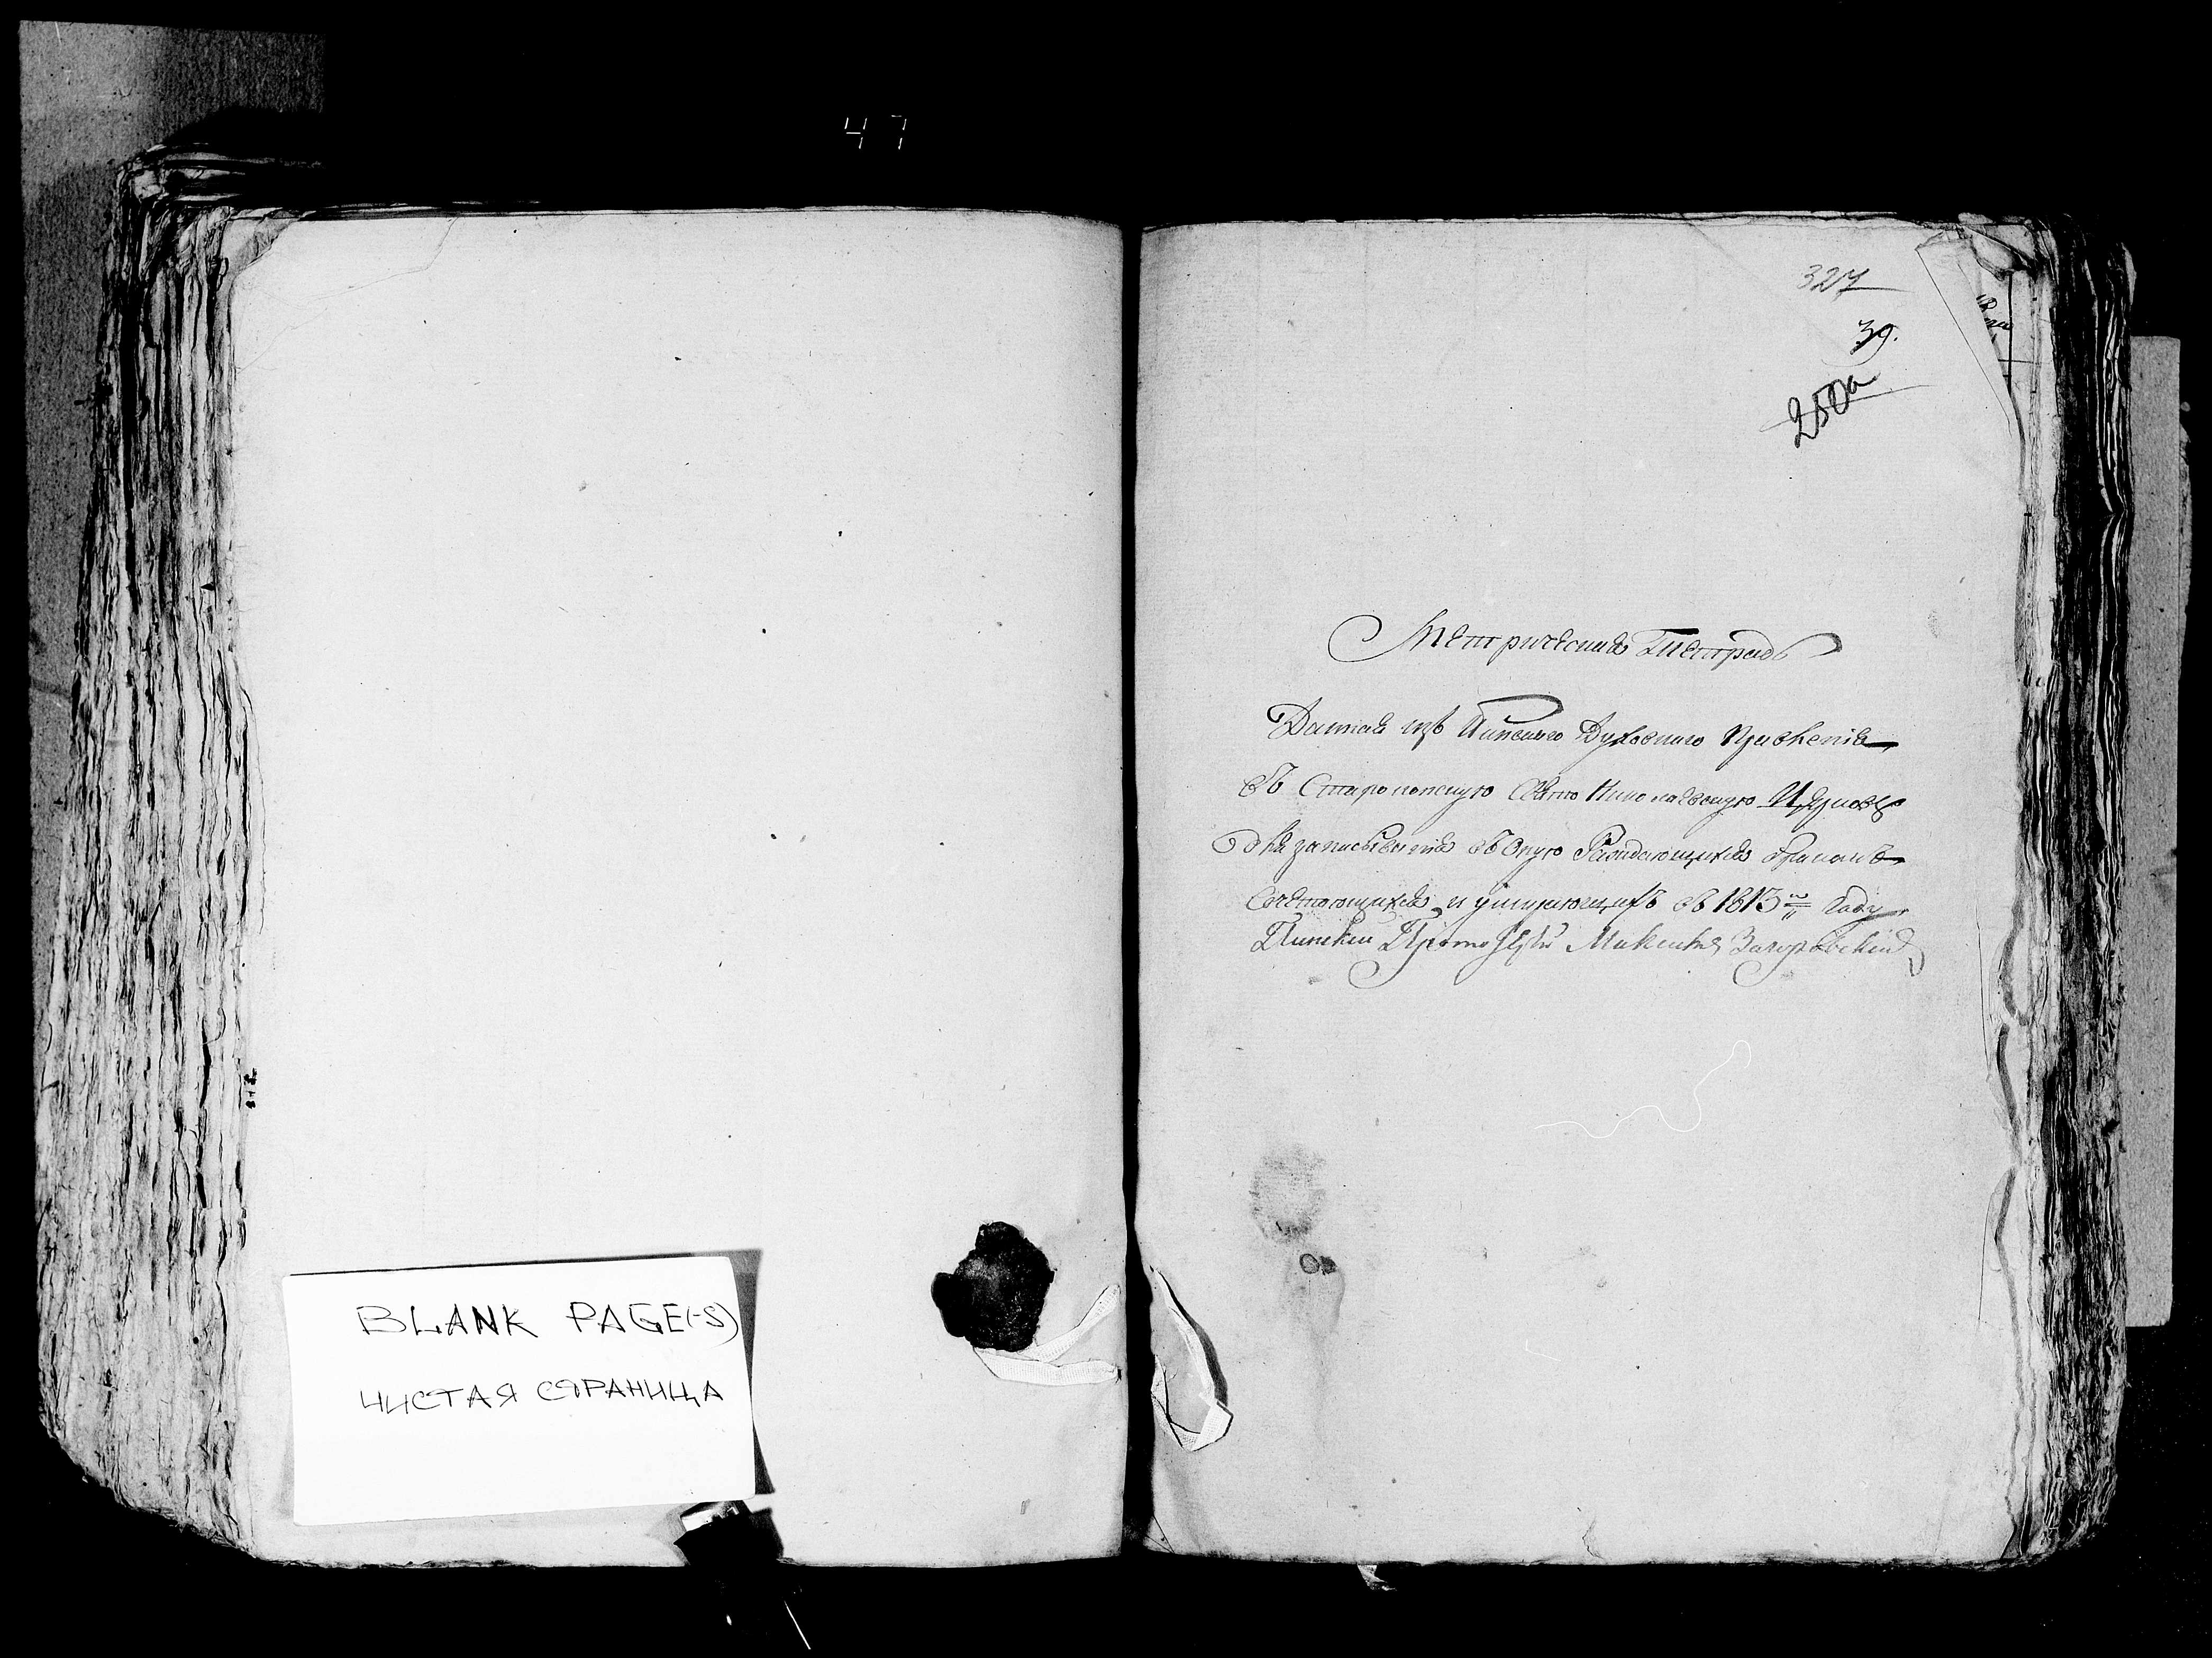 47
327
39.
250а
Метрическая Тетрадь
Данная изъ Пинскаго Духовнаго Правленія
въ Старо конскую Свято Николаевскую Церковь
для записыванія въ оную Раждающихся бракомъ
Сочетающихся и умирающихъ въ 1813 м году
Пинскій Протоіерей Загоровскій
BLANK PAGE(-S)
ЧИСТАЯ СТРАНИЦА